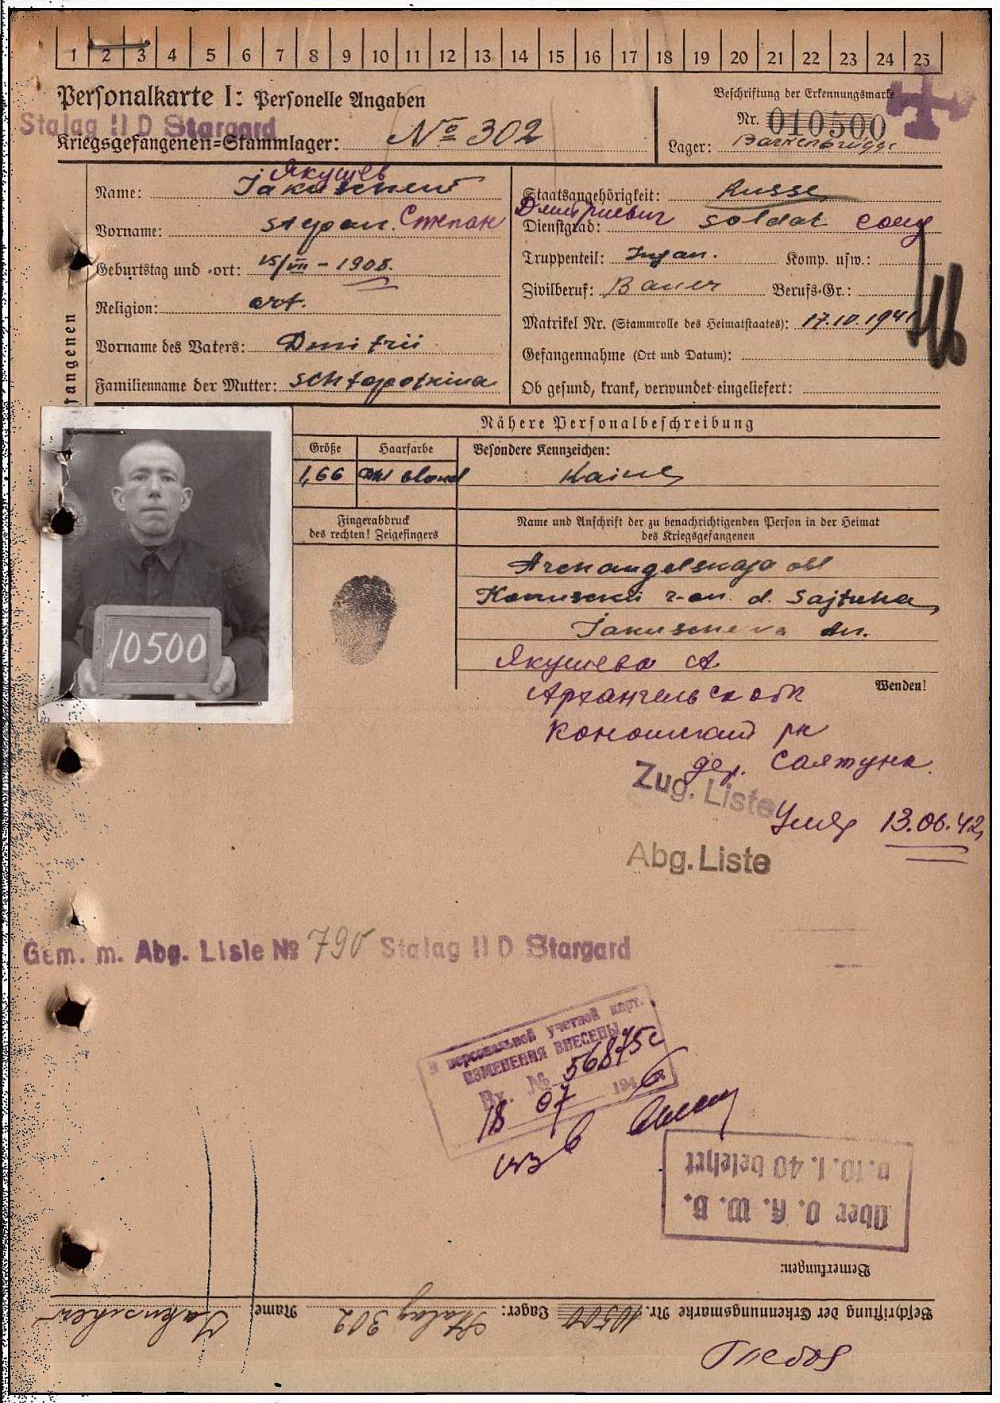 1 2 3 4 5 6 7 8 9 10 11 12 13 14 15 16 17 18 19 20 21 22 23 24 25
Personalkarte I: Personelle Angaben
Beschriftung der Erkennungsmarke
Stalag II D Stargard
Nr. 010500
Kriegsgefangenen-Stammlager: № 302
Lager: Barkenbrügge
Якушев
Name: Jakuschew
Staatsangehörigkeit: Russe
Дмитриевич
Vorname: Stepan. Степан
Dienstgrad: Soldat солд
Geburtstag und -ort: 15/VII - 1908.
Truppenteil: Infan. Komp. usw.:
Religion: ort.
Zivilberuf: Bauer Berufs-Gr.:
Matrikel Nr. (Stammrolle des Heimatstaates): 17.10.1941
Vorname des Vaters: Dmitrii
Gefangennahme (Ort und Datum):
Familienname der Mutter:
Ob gesund, krank, verwundet eingeliefert:
fangenen
Nähere Personalbeschreibung
Größe Haarfarbe Besondere Kennzeichen:
1,66 blond Keine
Fingerabdruck
des rechten! Zeigefingers
Name und Anschrift der zu benachrichtigenden Person in der Heimat
des Kriegsgefangenen
10500
Archangelskaja obl
r-on. d. Sajtuha
Jakuscheva An.
Якушева А
Архангельск обл
Коношский рн
Wenden!
дер. Саятуна.
Zug. Liste
Умер 13.06.42
Abg. Liste
Gem. m. Abg. Liste № 790 Stalag II D Stargard
В персональной учетной карт.
ИЗМЕНЕНИЯ ВНЕСЕНЫ
Вх. № 56875с
18 07 1946
Über O. K. W. B.
v. 10. 1. 40 belehrt
Bemerkungen:
Beschriftung der Erkennungsmarke Nr. 10500 Lager: Stalag 302 Name Jakuschew
Глебов